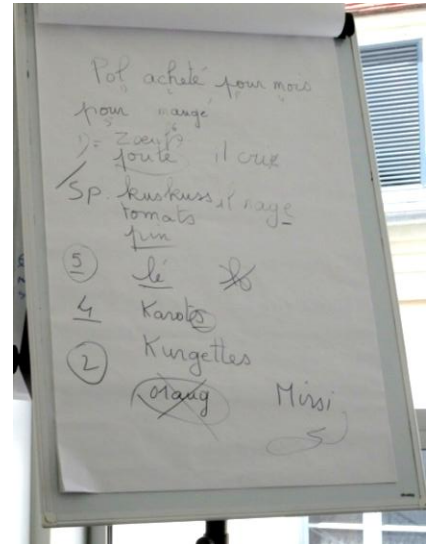 Pol acheté pour mois
pour mangé
1)= Zoeufs
joute il crie
SP. kuskuss il nage
tomats
pin
5 lé
4 Karots
2 Kurgettes
orang Mirsi